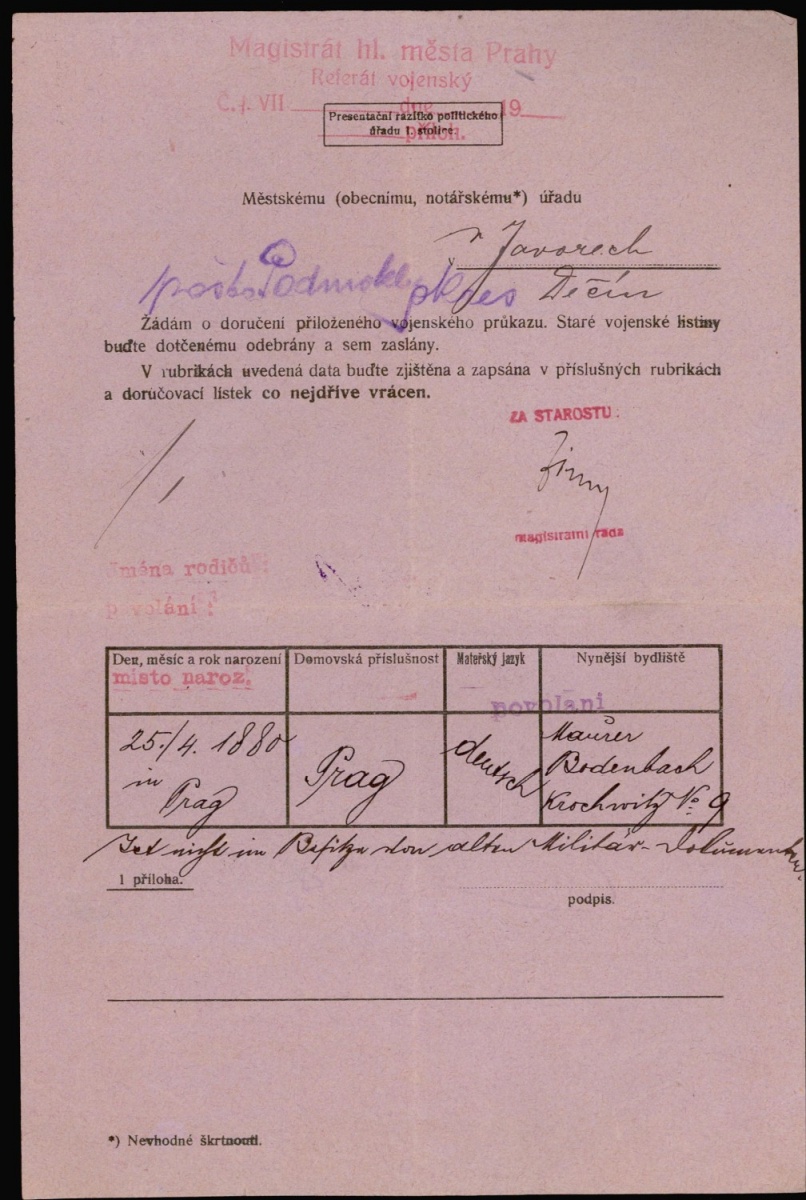 Magistrát hl. města Prahy
Referát vojenský
Č. j. VII dne 19
příloh.
Presentační razítko politického
úřadu I. stolice.
Městskému (obecnímu, notářskému*) úřadu
v Javorech
pošta Podmokly okres Děčín
Žádám o doručení přiloženého vojenského průkazu. Staré vojenské listiny
buďte dotčenému odebrány a sem zaslány.
V rubrikách uvedená data buďte zjištěna a zapsána v příslušných rubrikách
a doručovací lístek co nejdříve vrácen.
ZA STAROSTU:
magistrátní rada
Jména rodičů:
povolání:
Den, měsíc a rok narození
místo naroz.
Domovská příslušnost
Mateřský jazyk
Nynější bydliště
povolání
25./4. 1880
in
Prag
Prag
deutsch
Maurer
Bodenbach
Krochwitz No 9
Ist nicht im Besitze von alten Militär-Dokumenten.
1 příloha.
podpis.
*) Nevhodné škrtnouti.